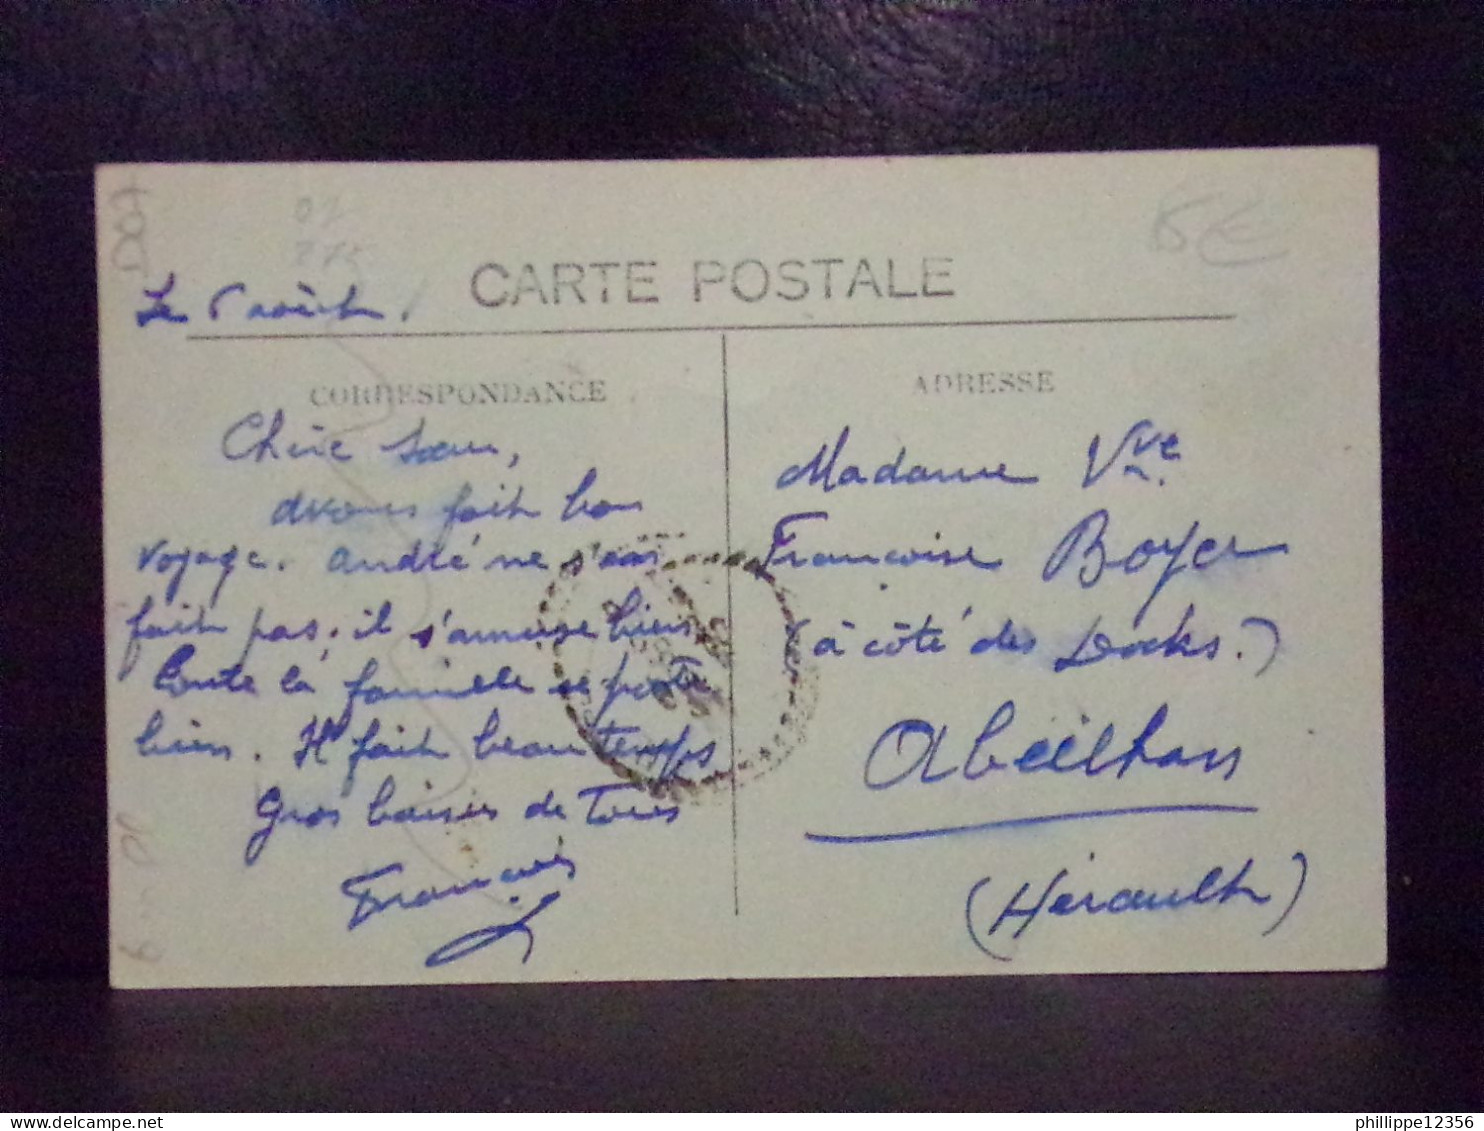 CARTE POSTALE
Le 5 août.
CORRESPONDANCE
Chère sœur,
avons fait bon
voyage. André ne s'en
fait pas, il s'amuse bien
toute la famille se porte
bien. Il fait beau temps
Gros baisers de Tous
François
ADRESSE
5€
Madame Vve
Françoise Boyer
(à côté des Docks.)
Abeilhan
(Hérault)
phillippe12356